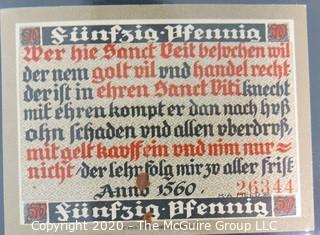 50 Fünfzig Pfennig 50
Wer hie Sanct Veit besvchen wil
der nem golt vil vnd handel recht-
der ist in ehren Sanct Viti knecht
mit ehren kompt er dan nach hvß
ohn schaden vnd allen vberdroß,
mit gelt kavff ein vnd nim nur
nicht, der lehr folg mir zv aller frist
Anno 1560.
26344
50 Fünfzig Pfennig 50
Copyright © 2020 - The McGuire Group LLC